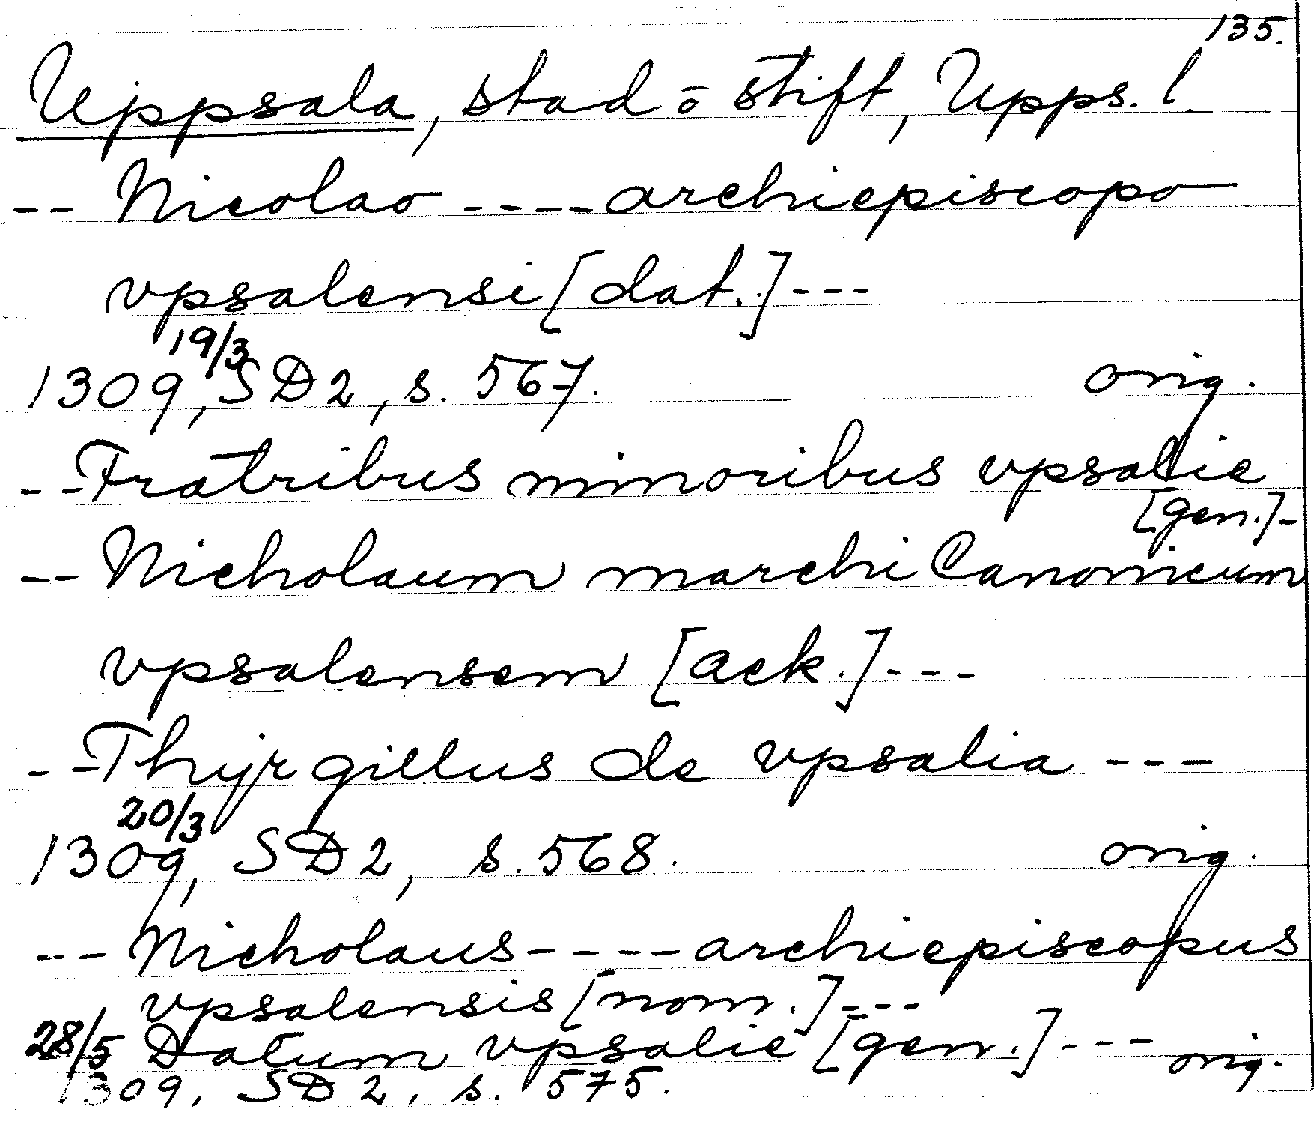 135.
Uppsala, stad o stift, Upps. l
-- Nicolao ---- archiepiscopo
vpsalensi [dat.] ---
19/3
1309, SD2, s. 567. orig.
-- Fratribus minoribus vpsalie
[gen.] -
-- Nicholaum marchi Canonicum
vpsalensem [ack.] ---
-- Thyrgillus de vpsalia ---
20/3
1309, SD2, s. 568. orig.
--- Nicholaus ---- archiepiscopus
vpsalensis [nom.] ---
28/5 Datum vpsalie [gen.] --- orig.
1309, SD2, s. 575.